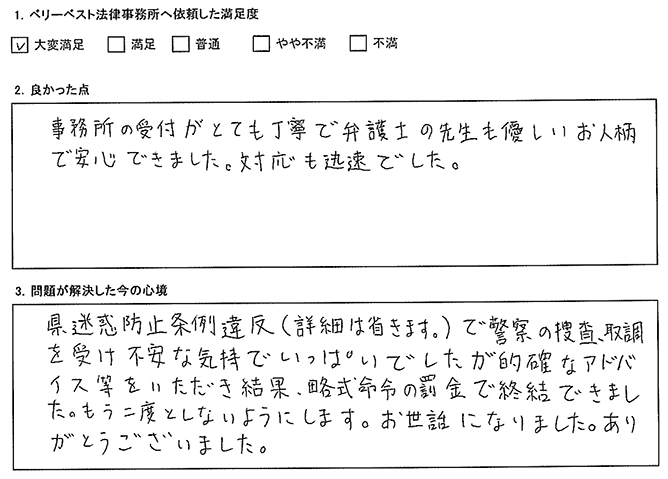 1. ベリーベスト法律事務所へ依頼した満足度
☑ 大変満足 □ 満足 □ 普通 □ やや不満 □ 不満
2. 良かった点
事務所の受付がとても丁寧で弁護士の先生も優しいお人柄
で安心できました。対応も迅速でした。
3. 問題が解決した今の心境
県迷惑防止条例違反(詳細は省きます。)で警察の捜査、取調
を受け不安な気持でいっぱいでしたが的確なアドバ
イス等をいただき結果、略式命令の罰金で終結できまし
た。もう二度としないようにします。お世話になりました。あり
がとうございました。